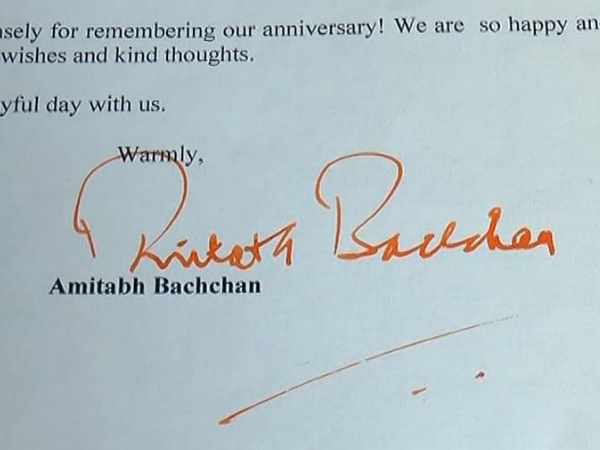 sely for remembering our anniversary! We are so happy an
wishes and kind thoughts.
yful day with us.
Warmly,
Amitabh Bachchan
Amitabh Bachchan